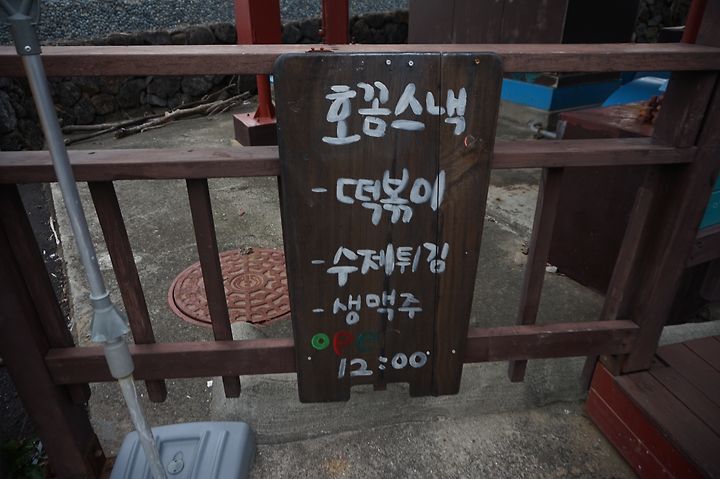 호꼼스낵
- 떡볶이
- 수제튀김
- 생맥주
OPE
12:00